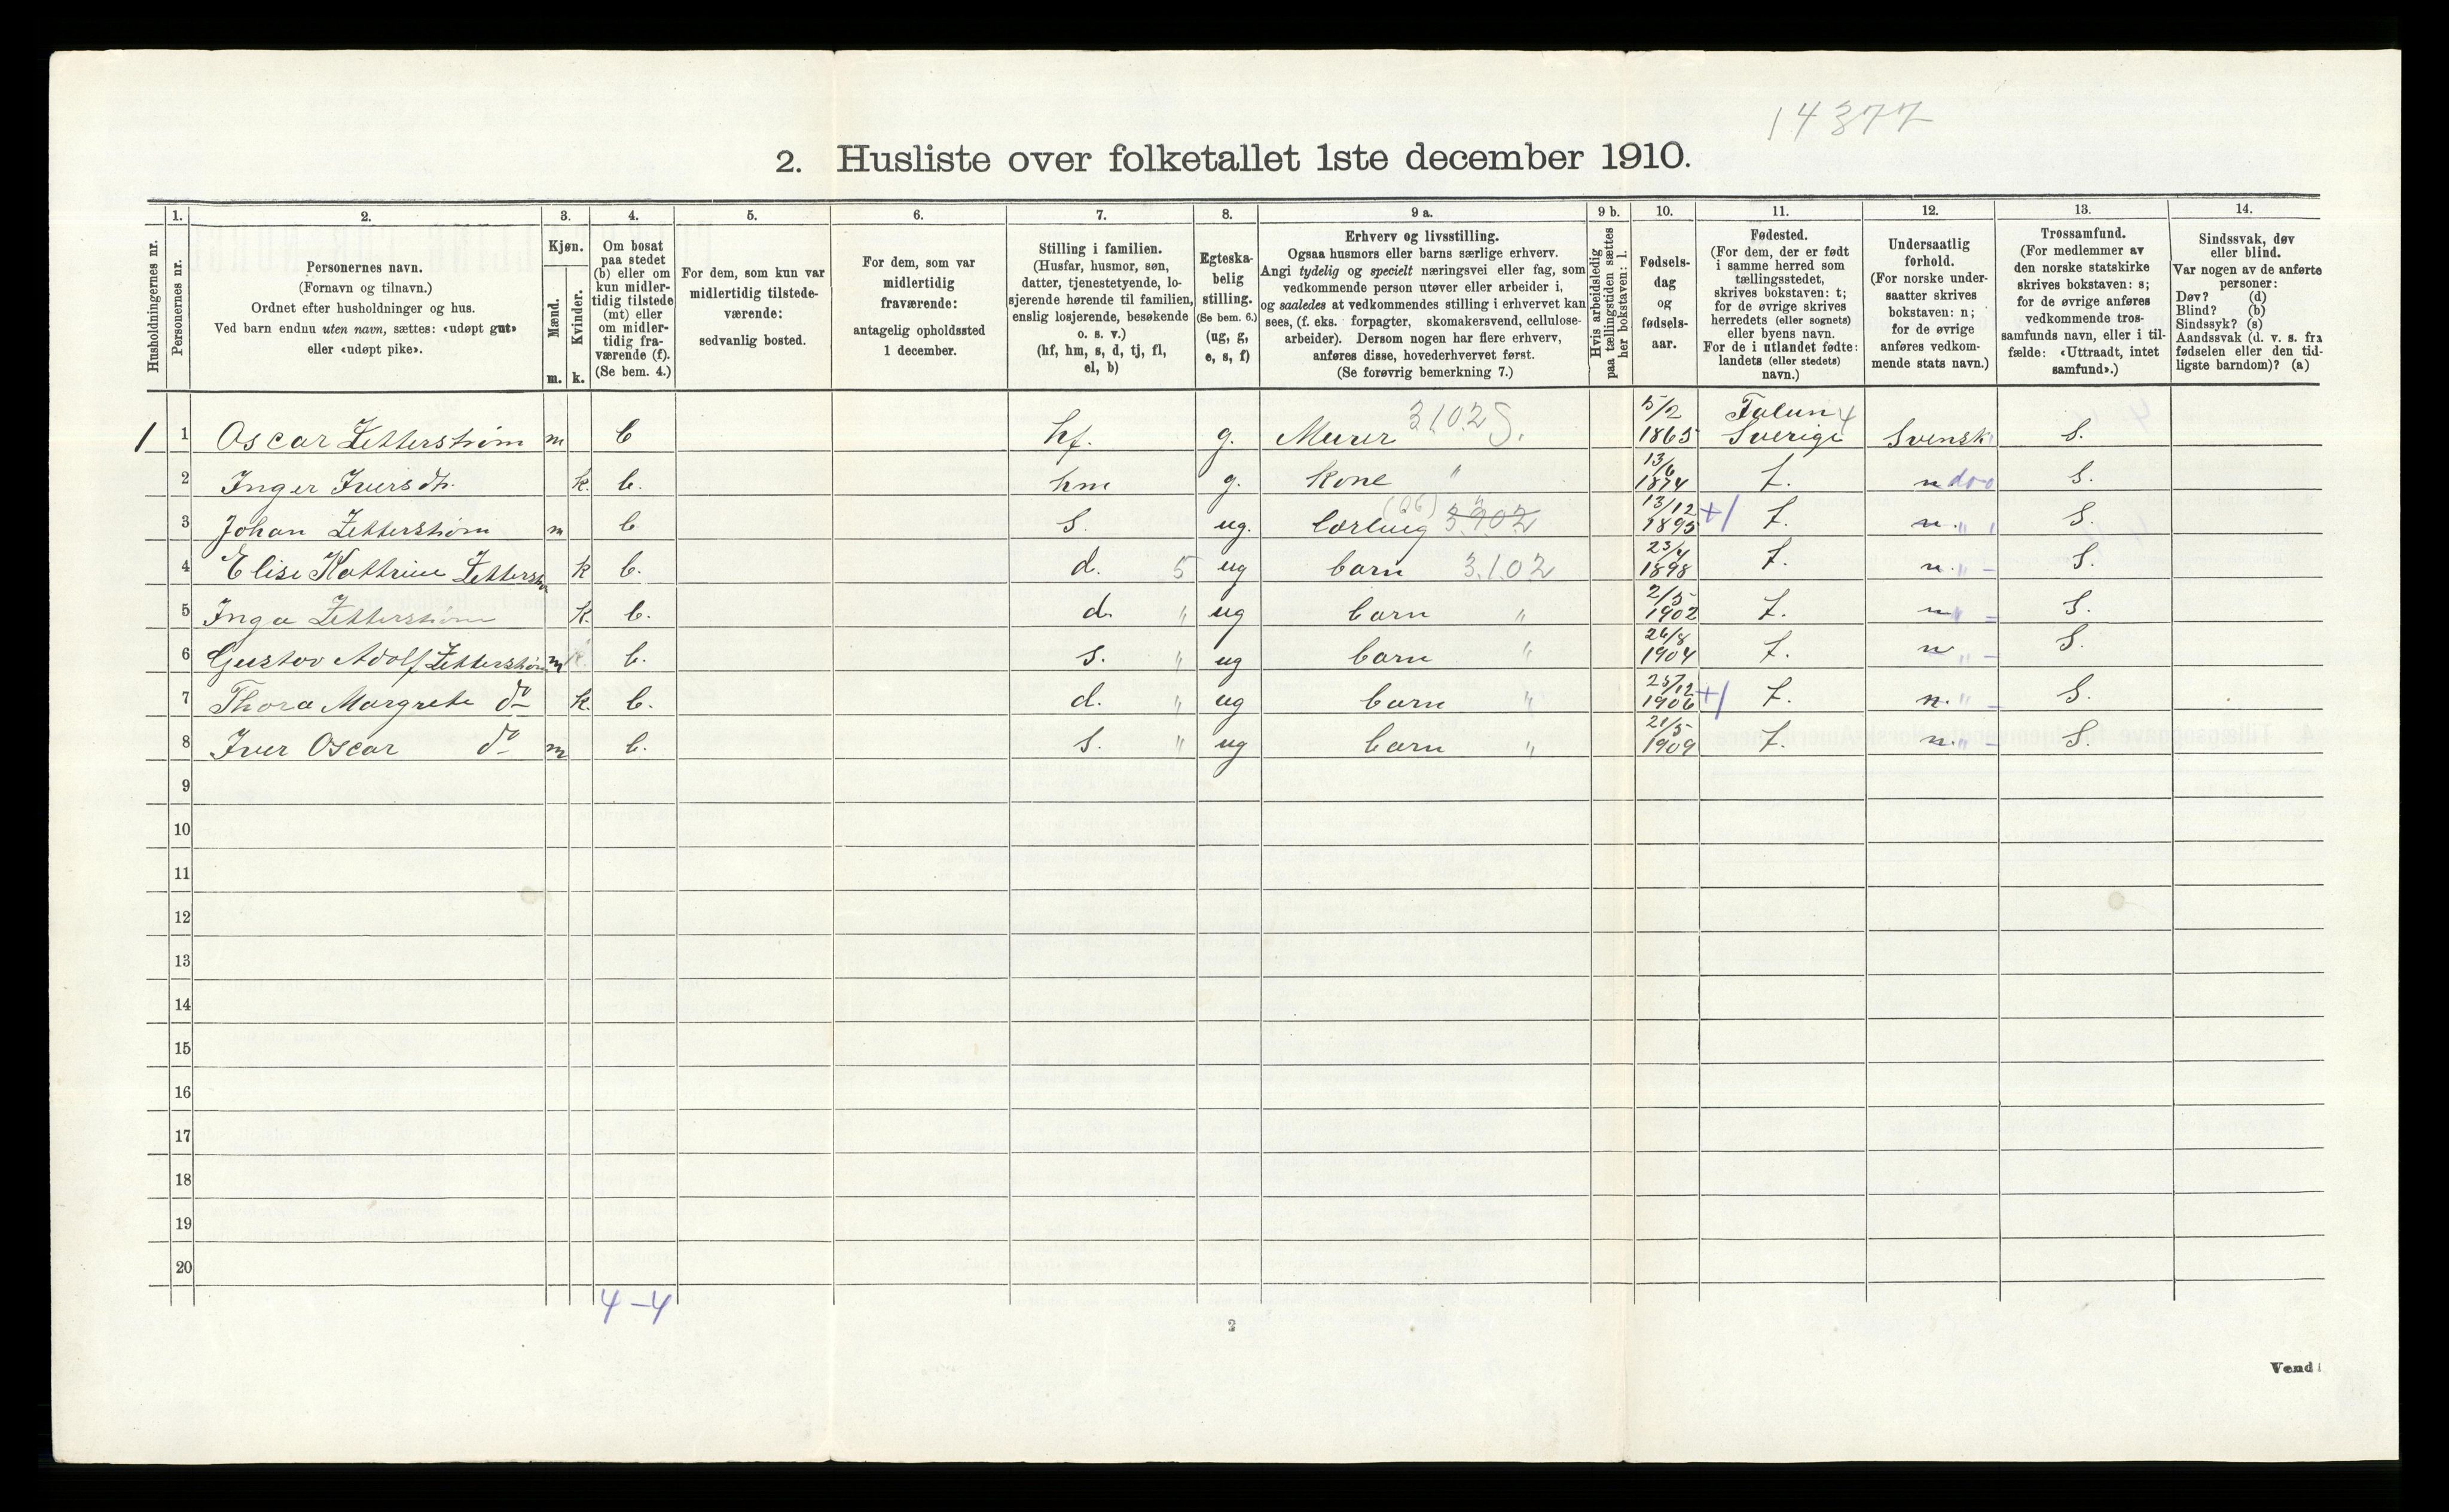 14377
2. Husliste over folketallet 1ste december 1910.
1. 2. 3. 4. 5. 6. 7. 8. 9 a. 9 b. 10. 11. 12. 13. 14.
Husholdningernes nr.
Personernes nr.
Personernes navn.
(Fornavn og tilnavn.)
Ordnet efter husholdninger og hus.
Ved barn endnu uten navn, sættes: «udøpt gut»
eller «udøpt pike».
Kjøn.
Mænd.
Kvinder.
m. k.
Om bosat
paa stedet
(b) eller om
kun midler-
tidig tilstede
(mt) eller
om midler-
tidig fra-
værende (f).
(Se bem. 4.)
For dem, som kun var
midlertidig tilstede-
værende:
sedvanlig bosted.
For dem, som var
midlertidig
fraværende:
antagelig opholdssted
1 december.
Stilling i familien.
(Husfar, husmor, søn,
datter, tjenestetyende, lo-
sjerende hørende til familien,
enslig losjerende, besøkende
o. s. v.)
(hf, hm, s, d, tj, fl,
el, b)
Egteska-
belig
stilling.
(Se bem. 6.)
(ug, g,
e, s, f)
Erhverv og livsstilling.
Ogsaa husmors eller barns særlige erhverv.
Angi tydelig og specielt næringsvei eller fag, som
vedkommende person utøver eller arbeider i,
og saaledes at vedkommendes stilling i erhvervet kan
sees, (f. eks. forpagter, skomakersvend, cellulose-
arbeider). Dersom nogen har flere erhverv,
anføres disse, hovederhvervet først.
(Se forøvrig bemerkning 7.)
Hvis arbeidsledig
paa tællingstiden sættes
her bokstaven: l.
Fødsels-
dag
og
fødsels-
aar.
Fødested.
(For dem, der er født
i samme herred som
tællingsstedet,
skrives bokstaven: t;
for de øvrige skrives
herredets (eller sognets)
eller byens navn.
For de i utlandet fødte:
landets (eller stedets)
navn.)
Undersaatlig
forhold.
(For norske under-
saatter skrives
bokstaven: n;
for de øvrige
anføres vedkom-
mende stats navn.)
Trossamfund.
(For medlemmer av
den norske statskirke
skrives bokstaven: s;
for de øvrige anføres
vedkommende tros-
samfunds navn, eller i til-
fælde: «Uttraadt, intet
samfund».)
Sindssvak, døv
eller blind.
Var nogen av de anførte
personer:
Døv? (d)
Blind? (b)
Sindssyk? (s)
Aandssvak (d. v. s. fra
fødselen eller den tid-
ligste barndom)? (a)
1 1 Oscar Zetterstrøm m b hf. g. Murer 3102 S. 5/2 1865 Falun Sverige Svensk S.
2 Inger Iversdtr. k. b. hm g. Kone " 13/6 1874 t. n S.
3 Johan Zetterstrøm m b S. ug. 3902 13/12 1895 t. n. S.
4 Elise Kathrine Zetterstrøm k b. d. 5 ug barn 3.1.02 23/4 1898 t. n. " S.
5 Inga Zetterstrøm k. b. d. " ug barn " 2/5 1902 t. n " S.
6 Gustav Adolf Zetterstrøm m b. s. " ug barn " 26/8 1904 t. n " S.
7 Thora Margrete do k. b. d. " ug barn " 25/12 1906 t. n. " S.
8 Iver Oscar do m b. s. " ug barn " 21/5 1909 t. n. " S.
9
10
11
12
13
14
15
16
17
18
19
20
4 – 4
2
Vend!